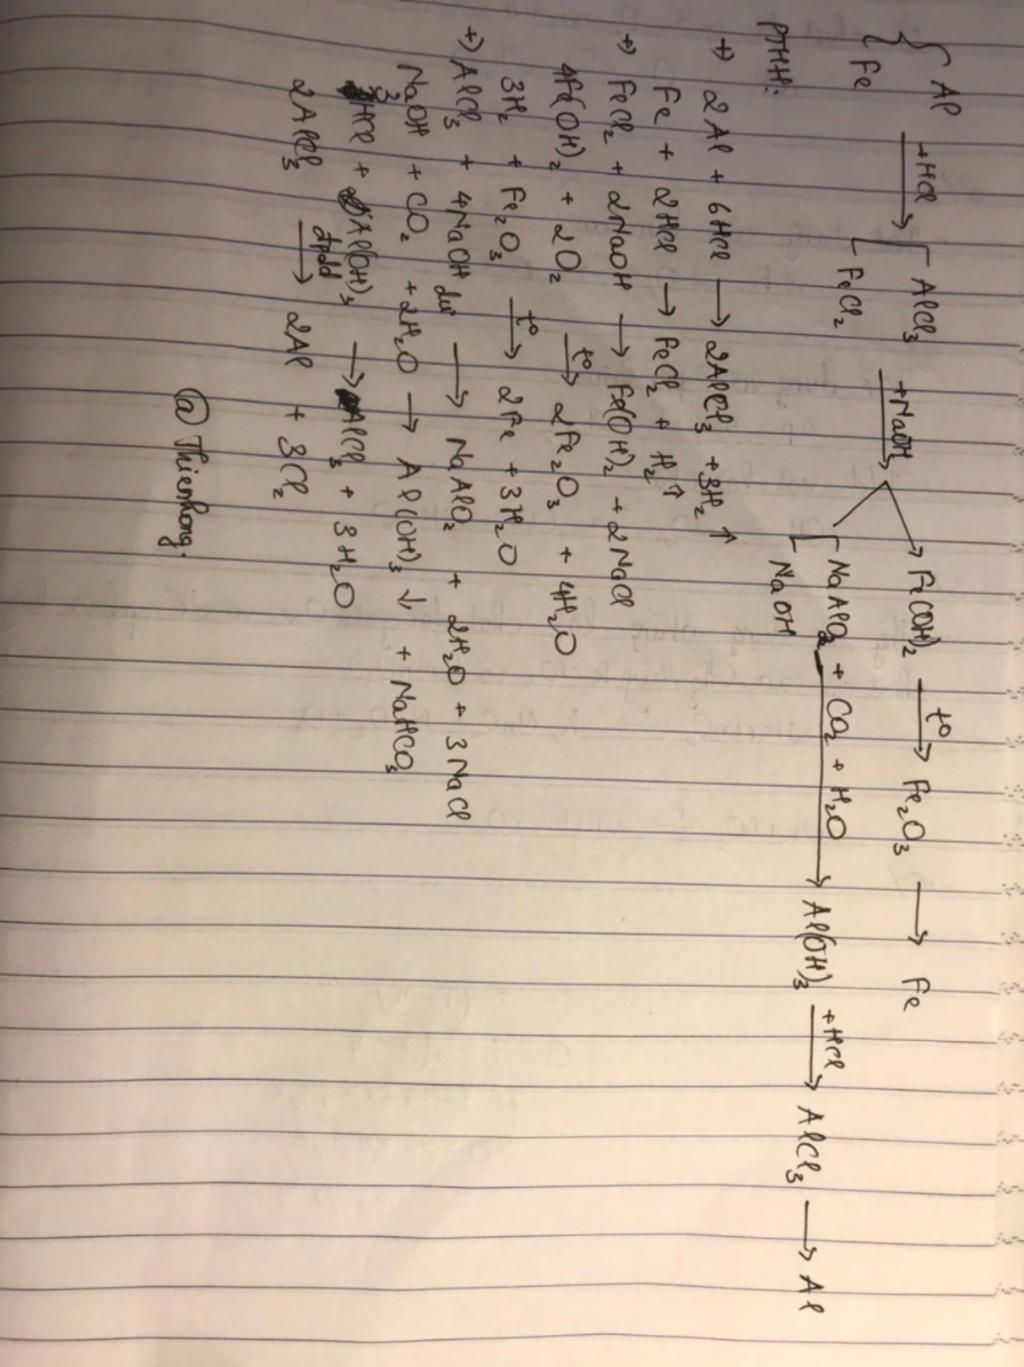 { Al →(+HCl) [ AlCl₃ →(+NaOH) Fe(OH)₂ →(t°) Fe₂O₃ → Fe
{ Fe [ FeCl₂ [ NaAlO₂ + CO₂ + H₂O → Al(OH)₃ →(+HCl) AlCl₃ → Al
[ NaOH
PTHH:
+) 2Al + 6HCl → 2AlCl₃ + 3H₂ ↑
Fe + 2HCl → FeCl₂ + H₂ ↑
+) FeCl₂ + 2NaOH → Fe(OH)₂ + 2NaCl
4Fe(OH)₂ + 2O₂ →(t°) 2Fe₂O₃ + 4H₂O
3H₂ + Fe₂O₃ →(t°) 2Fe + 3H₂O
+) AlCl₃ + 4NaOH dư → NaAlO₂ + 2H₂O + 3NaCl
NaOH + CO₂ + 2H₂O → Al(OH)₃ ↓ + NaHCO₃
3HCl + Al(OH)₃ → AlCl₃ + 3H₂O
2AlCl₃ →(đpdd) 2Al + 3Cl₂
@Thienhong.